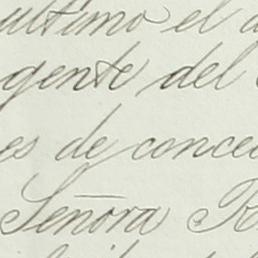 ultimo el
gente del
es de conce
Señora R